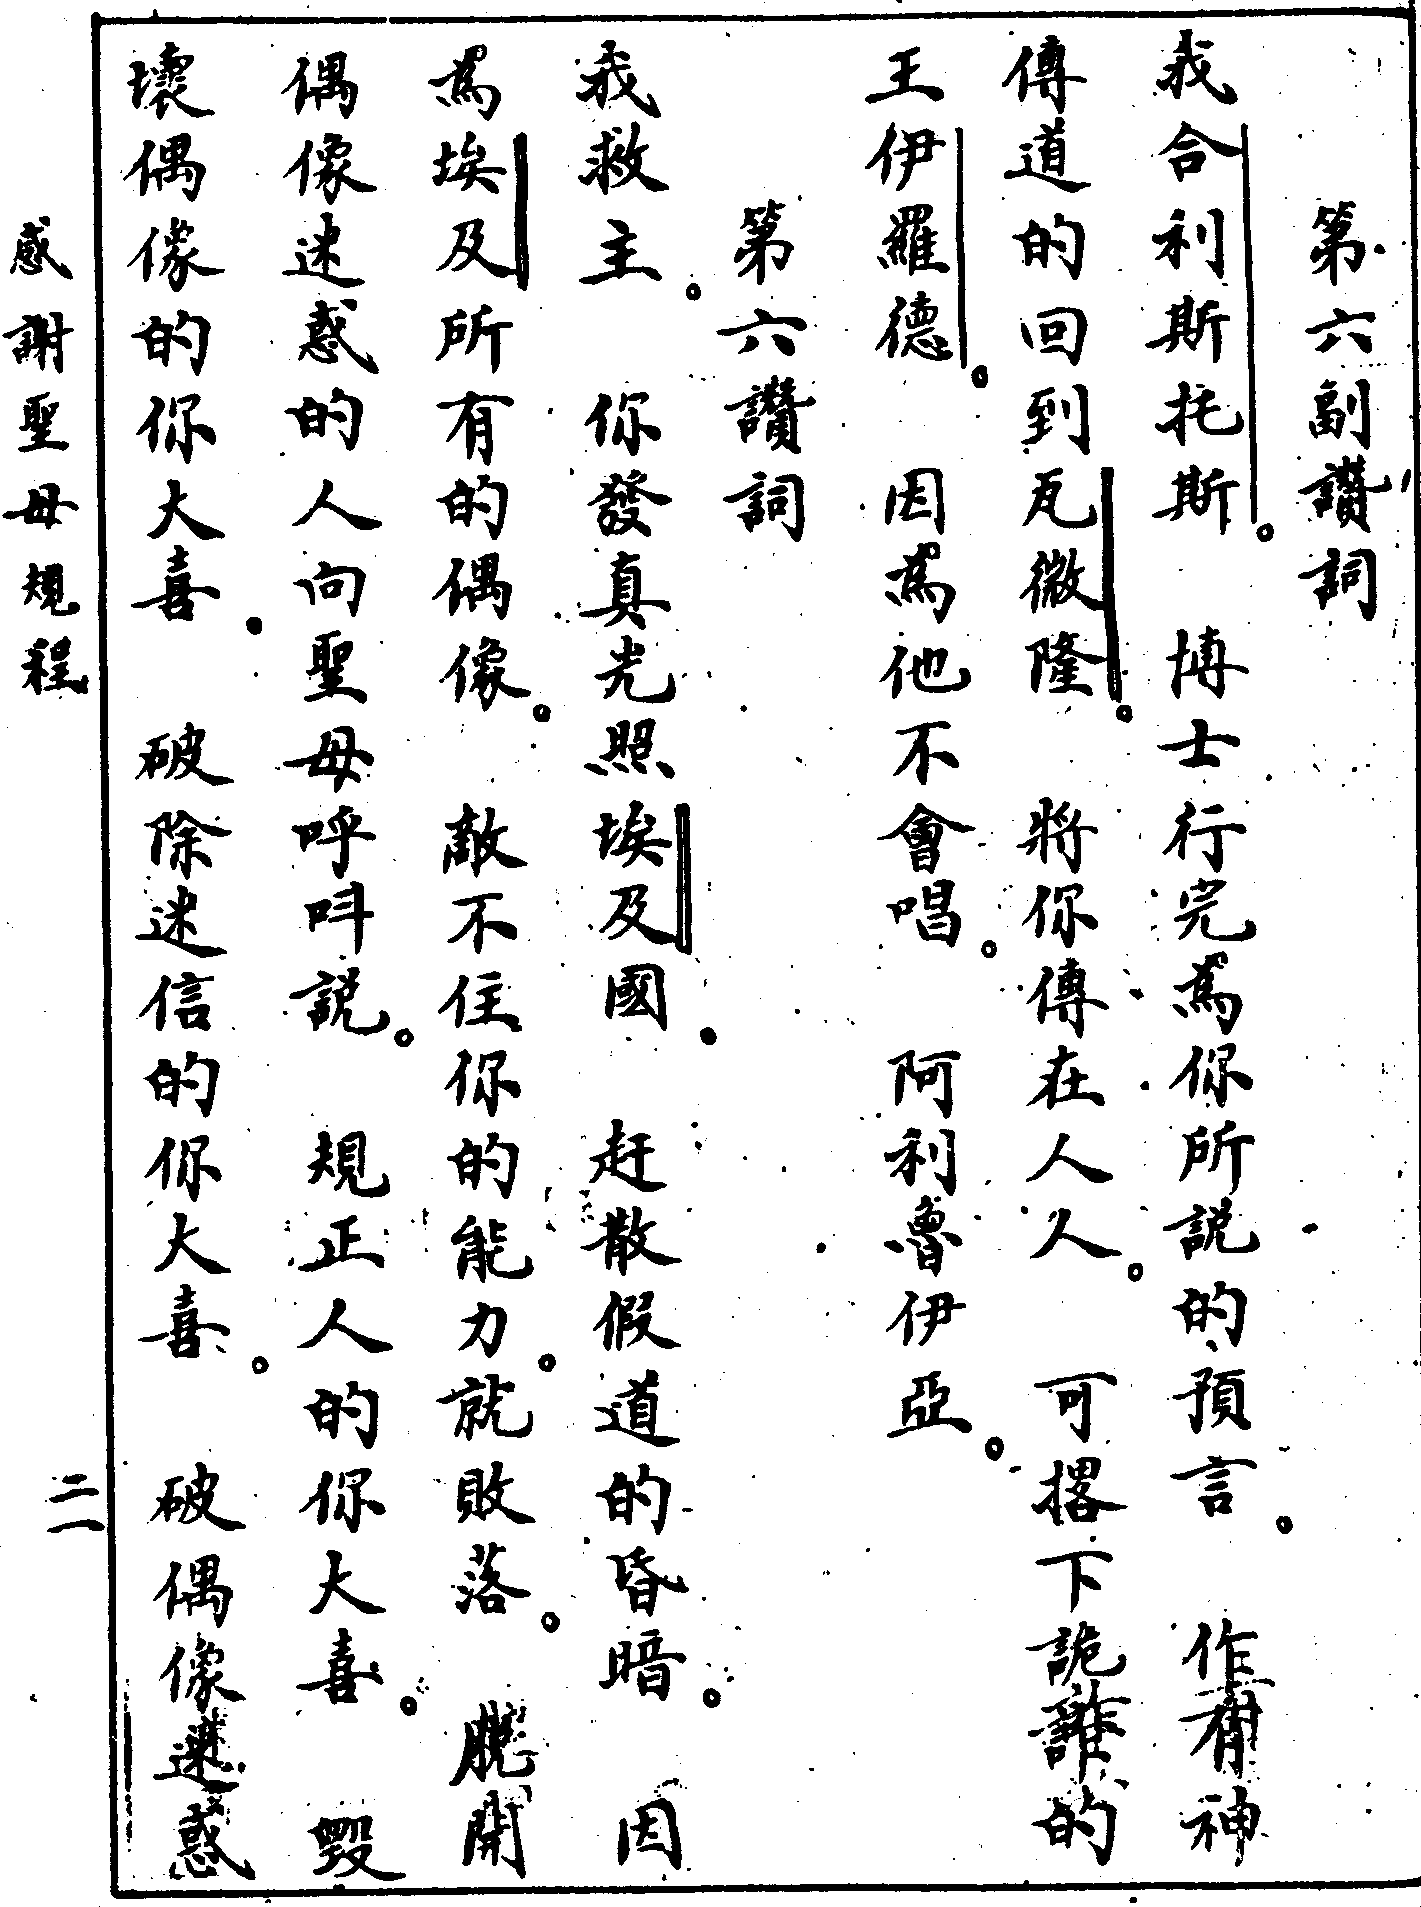 第六副讚詞
我合利斯托斯。博士行完為你所説的預言。作有神
傳道的回到瓦微隆。將你傳在人人。可撂下詭譎的
王伊羅德。因為他不會唱。阿利魯伊亞。
第六讚詞
我救主。你發真光照埃及國。赶散假道的昏暗。因
為埃及所有的偶像。敵不住你的能力。就敗落。脱開
偶像迷惑的人向聖母呼呌説。規正人的你大喜。毀
壞偶像的你大喜。破除迷信的你大喜。破偶像迷惑
感謝聖母規程
二一